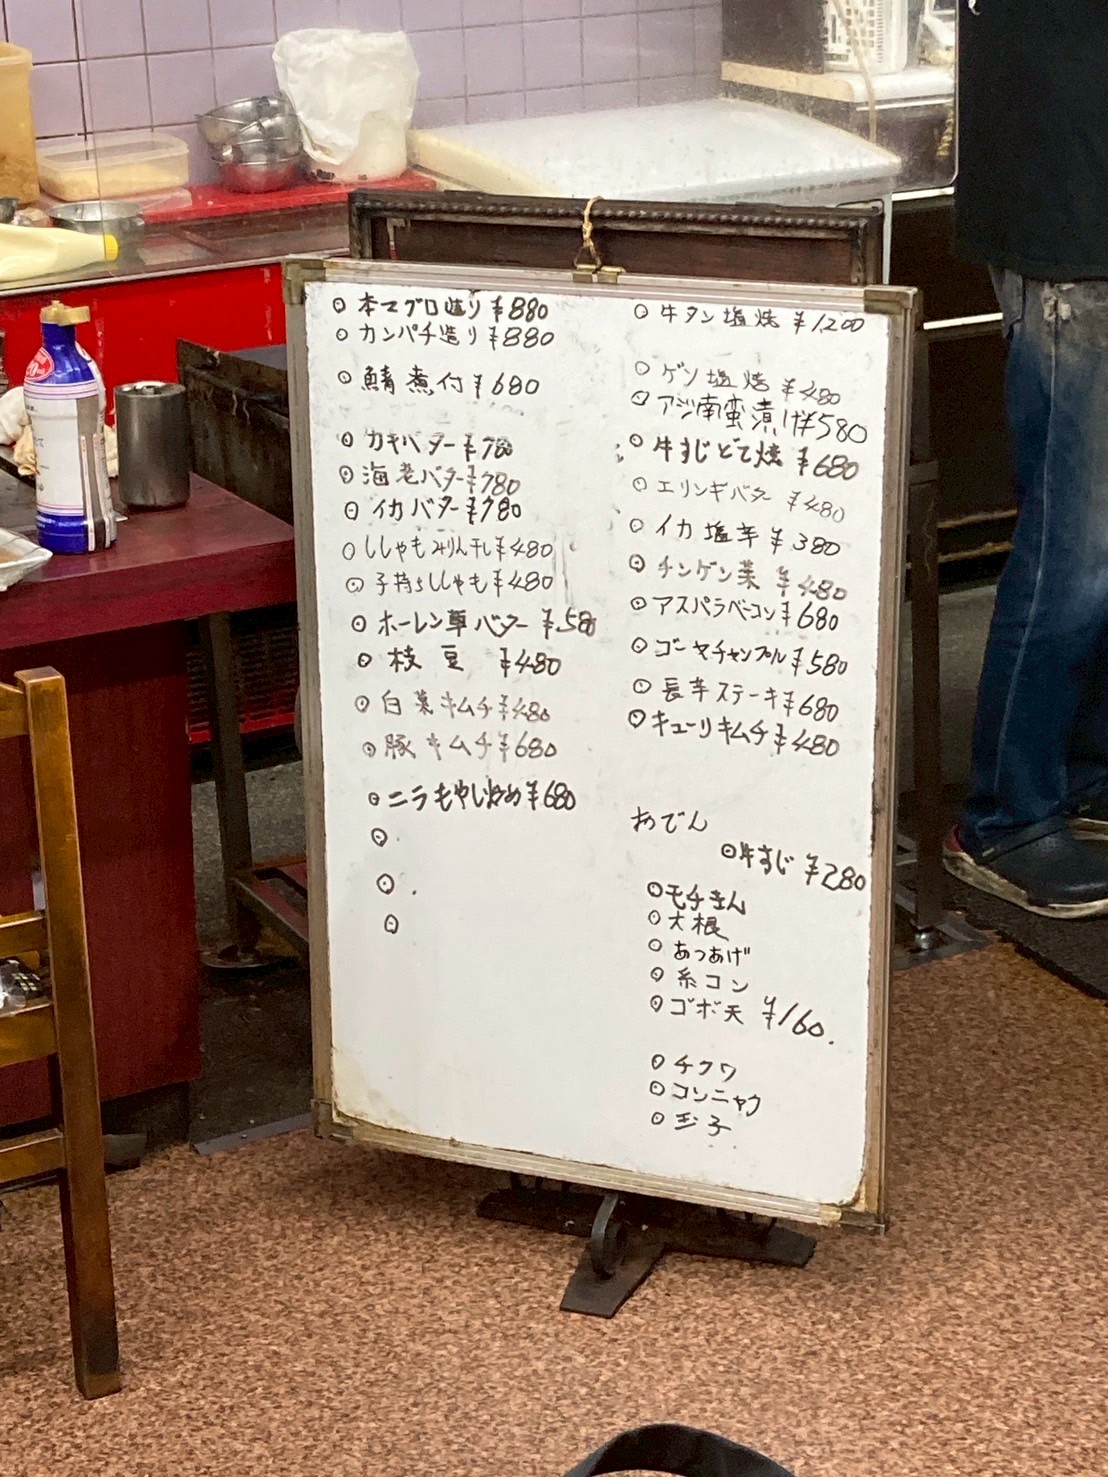 ◎本マグロ造り ¥880
◎カンパチ造り ¥880
◎鯖煮付 ¥680
◎カキバター ¥780
◎海老バター ¥780
◎イカバター ¥780
◎ししゃもみりん干し ¥480
◎子持ちししゃも ¥480
◎ホーレン草バター ¥580
◎枝豆 ¥480
◎白菜キムチ ¥480
◎豚キムチ ¥680
◎ニラもやし炒め ¥680
◎
◎
◎
◎牛タン塩焼 ¥1200
◎ゲソ塩焼 ¥480
◎アジ南蛮漬け ¥580
◎牛すじどて焼 ¥680
◎エリンギバター ¥480
◎イカ塩辛 ¥380
◎チンゲン菜 ¥480
◎アスパラベーコン ¥680
◎ゴーヤチャンプル ¥580
◎長芋ステーキ ¥680
◎キューリキムチ ¥480
おでん
◎牛すじ ¥280
◎モチきん
◎大根
◎あつあげ
◎糸コン
◎ゴボ天 ¥160.
◎チクワ
◎コンニャク
◎玉子